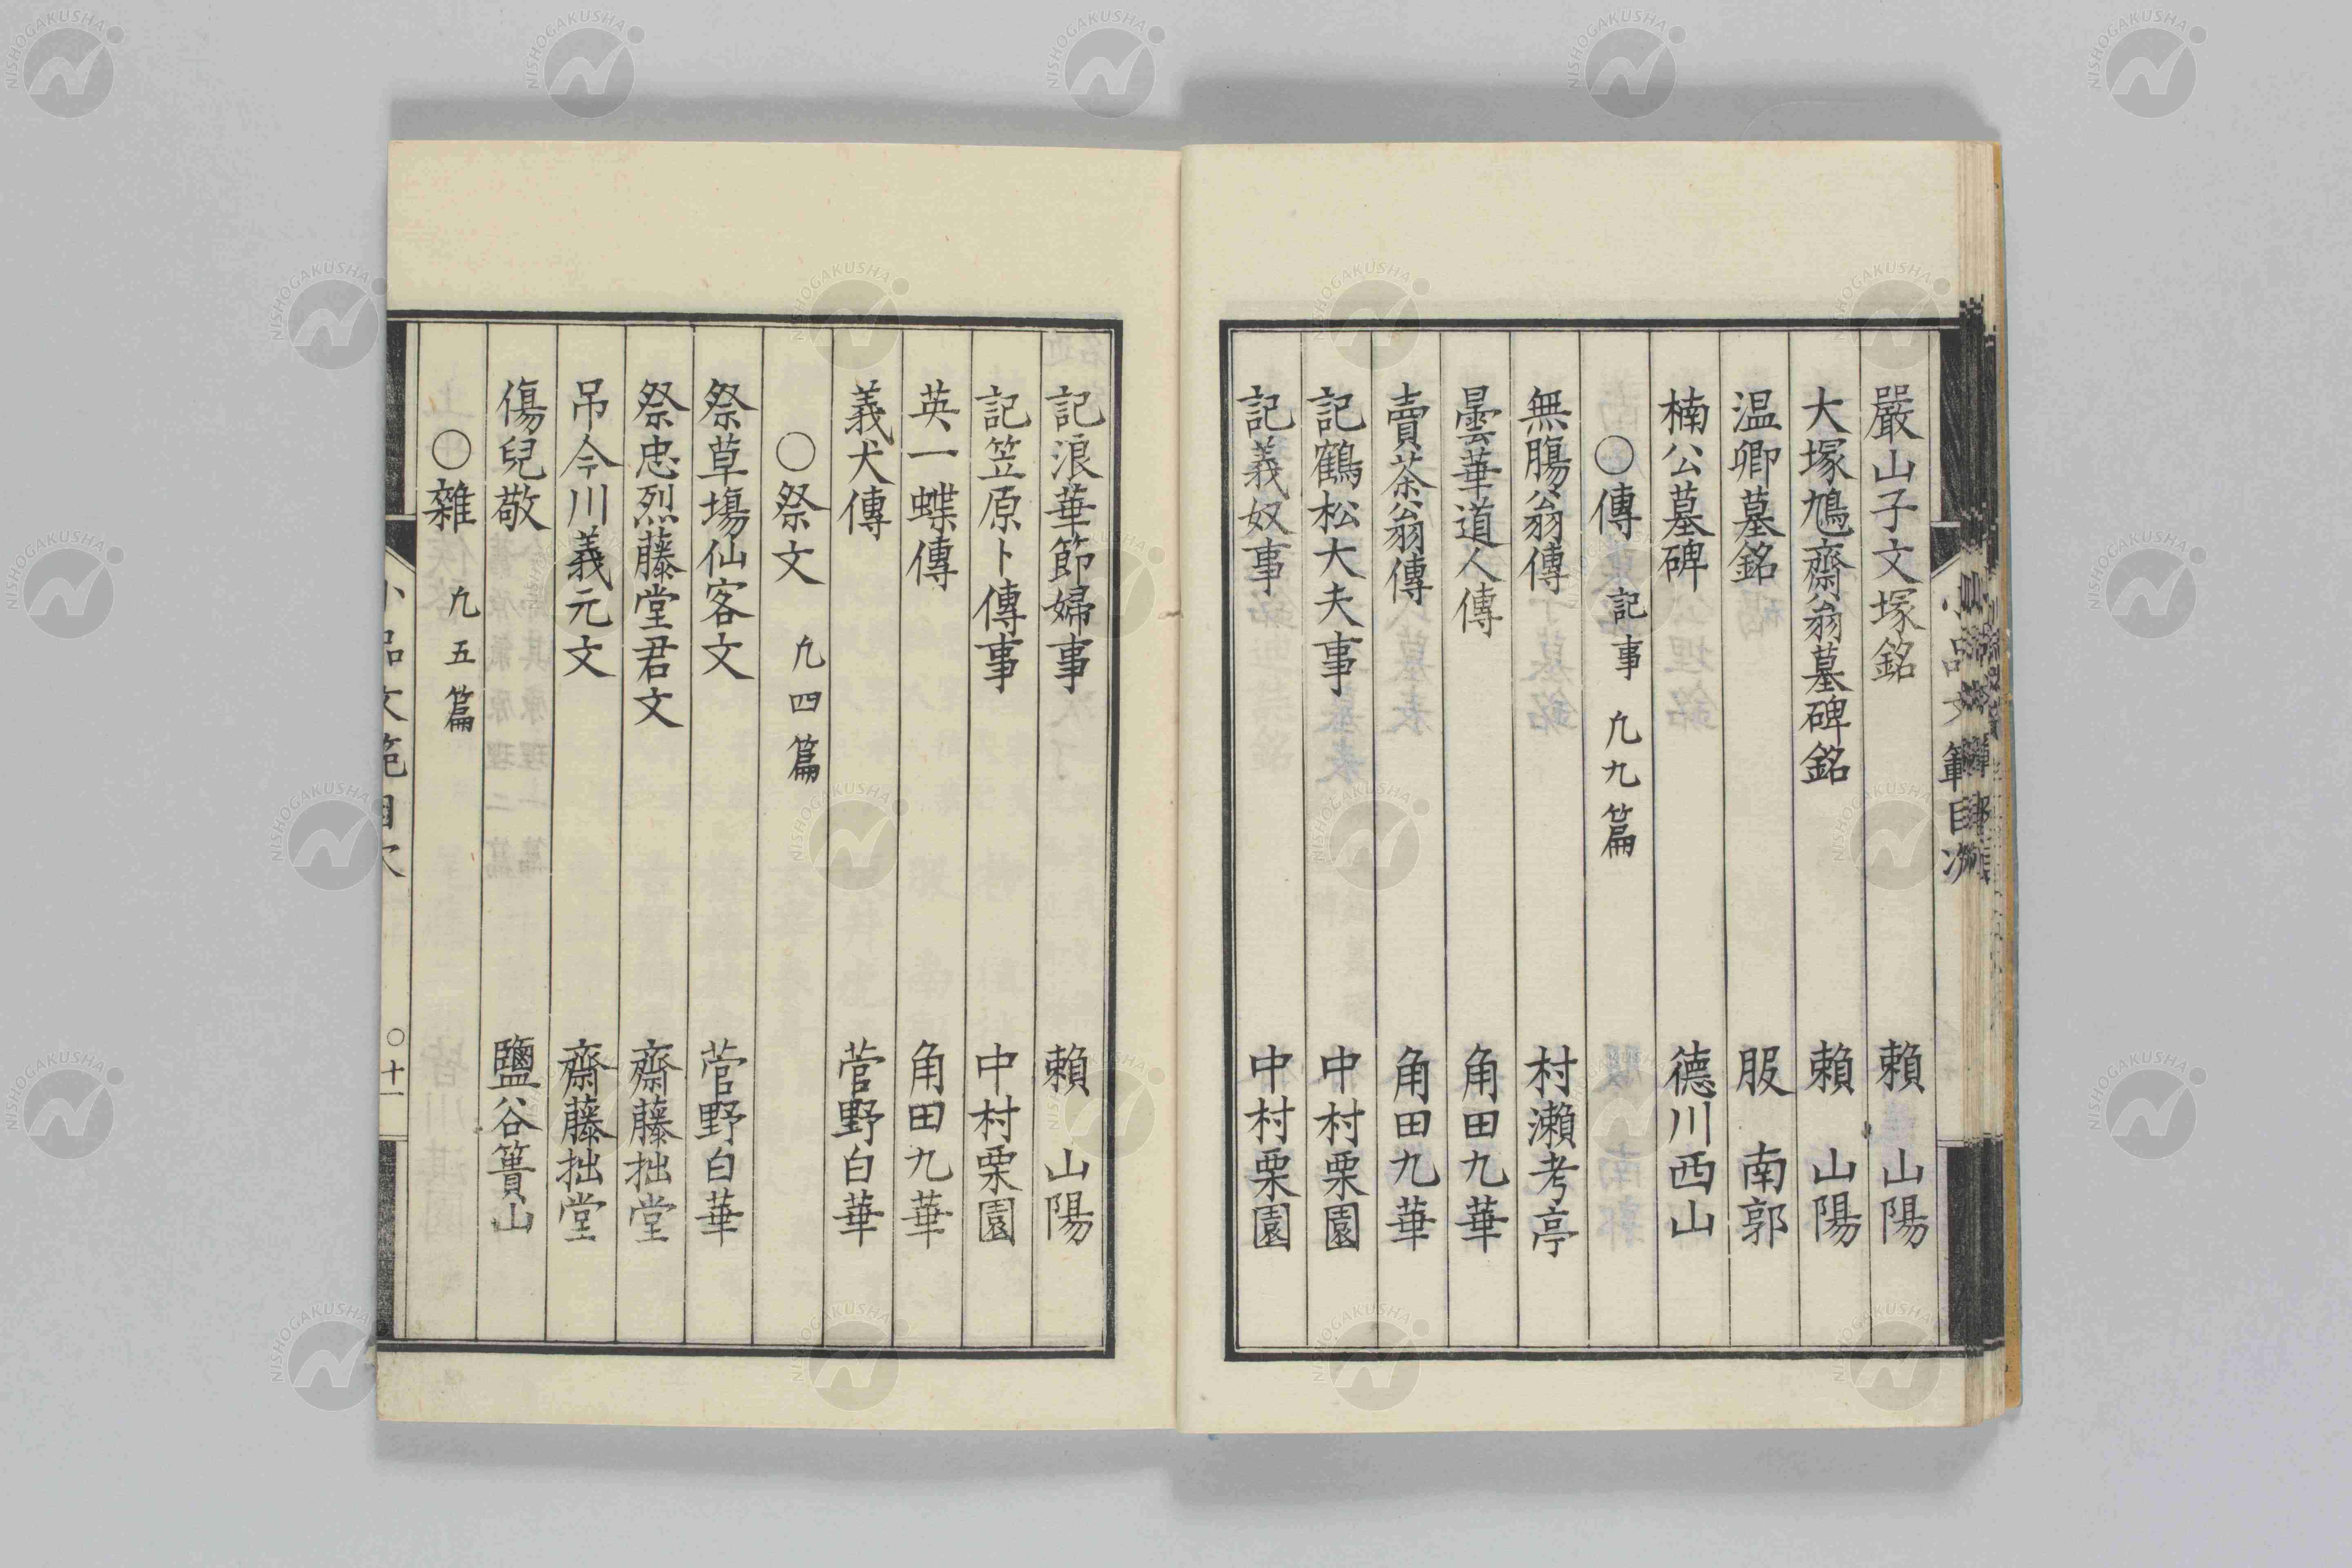 嚴山子文塚銘 賴 山陽
大塚鳩齋翁墓碑銘 賴 山陽
温卿墓銘 服 南郭
楠公墓碑 德川西山
○傳 記事 凢九篇
無膓翁傳 村瀨考亭
曇華道人傳 角田九華
賣茶翁傳 角田九華
記鶴松大夫事 中村栗園
記義奴事 中村栗園
記浪華節婦事 賴 山陽
記笠原卜傳事 中村栗園
英一蝶傳 角田九華
義犬傳 菅野白華
○祭文 凢四篇
祭草塲仙客文 菅野白華
祭忠烈藤堂君文 齋藤拙堂
吊今川義元文 齋藤拙堂
傷兒敬 鹽谷簣山
○雜 凢五篇
小品文範目次 ○十一
NISHOGAKUSHA